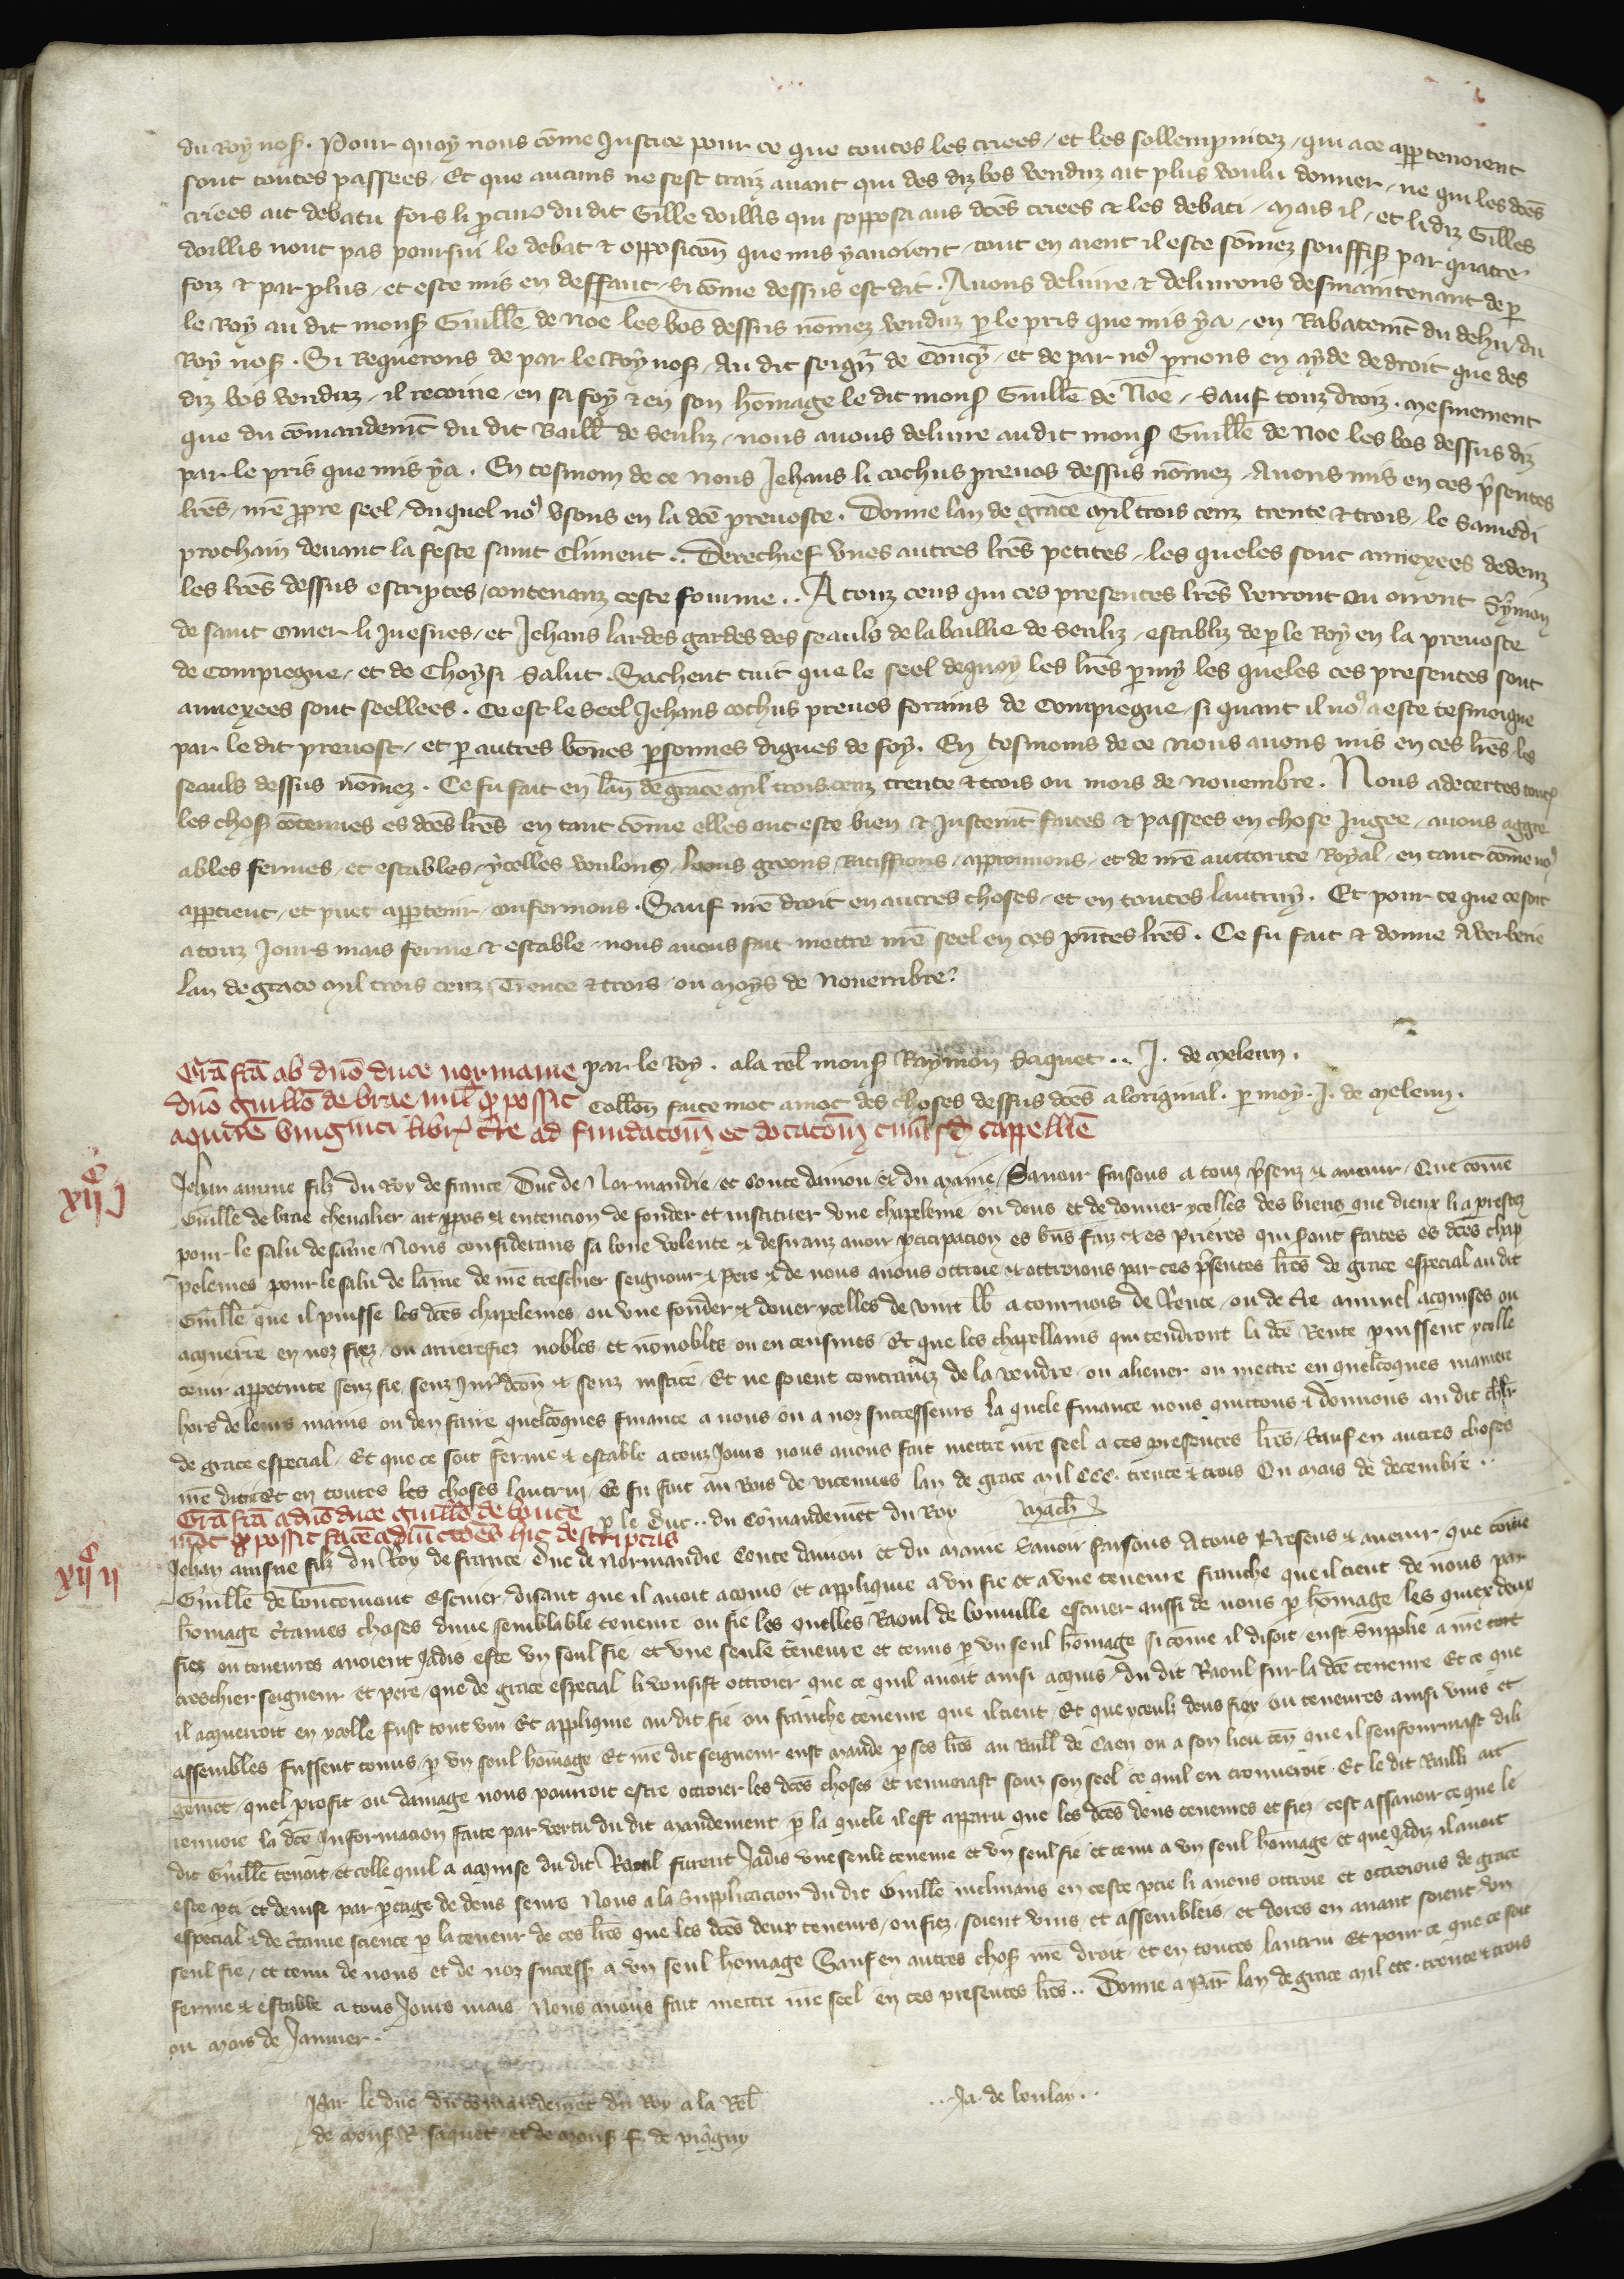 du Roy nos̃. Pour quoy nous cõme Justice pour ce que toutes les criees / et les sollempnitez / qui a ce appartenoient
sont toutes passees / Et que aucuns ne sest traiz avant qui des diz bos venduz ait plus voulu donner / ne qui les dc̃es
criees ait debatu fors li procur du dit Gille doillis qui sopposa aus dc̃es criees & les debati / Mais il / et li diz Gilles
doillis nont pas poursui le debat & opposicoñ que mis y avoient / tout en aient il este sõmez souffis̃ par quatre
foiz & par plus / et este mis en deffaut / si cõme dessus est dit. Avons delivre & delivrons desmaintenant de p̱
le Roy au dit mons̃ Guille͂ de Noe les bos dessus nõmez venduz p̱ le pris que mis y a / en Rabatem̃t du dehu du
Roy nos̃. Si Requerons de par le Roy nos̃ / au dit seign̄r de Coucy / et de par no9 prions en ayde de droit que des
diz bos venduz / il recoive / en sa foy & en son hõmage le dit mons̃ Guille͂ de Noe / Sauf touz droiz. Mesmement
que du cõmandem̃t du dit Baill̃ de Senliz / nous avons delivre au dit mons̃ Guille͂ de Noe les bos dessus diz
par le pris que mis y a. En tesmoin de ce nous Jehans li cochus prevos dessus nõmez / Avons mis en ces p̃sentes
lr̃es / nr̃e propre seel / du quel no9 usons en la dc̃e prevoste. Donne lan de grace mil trois cenz trente & trois / le Samedi
prochain devant la feste saint Climent.. Derechief unes autres lr̃es petites / les queles sont annexees dedenz
les lr̃es dessus escriptes / contenanz ceste fourme.. A touz ceus qui ces presentes lr̃es verront ou orront Symon
de saint Omer li Juesnes / et Jehans lardes gardes des seauls de la baillie de Senliz / establiz de p̱ le Roy en la prevoste
de Compiegne / et de Choysi Salut. Sachent tuit que le seel de quoy les lr̃es p̱my les queles ces presentes sont
annexees sont seellees. Ce est le seel Jehans cochus prevos forains de Compiegne / si quant il no9 a este tesmoigne
par le dit prevost / et p̱ autres bõnes p̱sonnes dignes de foy. En tesmoins de ce nous avons mis en ces lr̃es les
seauls dessus nõmez. Ce fu fait en lan de grace mil trois cenz trente & trois ou mois de Novembre. Nous adecertes toutes
les chos̃ cõtenues es dc̃es lr̃es en tant cõme elles ont este bien & Justem̃t faites & passees en chose Jugee / avons aggre
ables fermes / et estables / ycelles voulons / loons greons Ratiffions / approuvons / et de nr̃e auttorite Royal / en tant cõme no9
appartient / et puet appartenir / confermons. Sauf nr̃e droit en autres choses / et en toutes lautruy. Et pour ce que ce soit
a touz Jours mais ferme & estable / nous avons fait mettre nr̃e seel en ces pñtes lr̃es. Ce fu fait & donne A Verberie
lan de grace mil trois cenz Trente & trois / ou moys de Novembre.
par le Roy. a la rel̃ mons̃ Raymon Saquet.. J. de Meleun.
Collon͂ faite mot a mot des choses dessus dc̃es a loriginal. p̱ moy. J. de Meleun.
Grã fcã ab dñõ duce normanie
dñõ guillõ de brae mil̃ q̃ possit
aquirẽ viuginti libr̃ t̃re ad fundacõm̃ et dotacõm̃ cuiusd̃ cappellĩe
xiijc j
Jehan ainsne filz du Roy de france / Duc de Normandie / et Conte danjou & du Maine / Savoir faisons a touz p̃senz & avenir / Que cõme
Guille͂ de brae chevalier ait propos & entencion de fonder et instituer une chapelenie ou deus et de donner ycelles des biens que dieux li a prestez
pour le salu de sãme / Nous considerans sa bone volente & desiranz avoir p̱ticipacion es bñs faiz & es prieres qui seront faites es dc̃es chap
pelenies pour le salu de lãme de nr̃e treschier seigneur & Pere & de nous avons ottroie & ottroions par ces p̃sentes lr̃es de grace especial au dit
Guille͂ que il puisse les dc̃es chapelenies / ou une fonder & douer ycelles de vint lb̃ a tournois de Rente / ou de t̃re annuel acquises ou
acquerre en noz fiez / ou arrierefiez nobles et nõnobles / ou en censives / Et que les chapellains qui tendront la dc̃e Rente puissent ycelle
tenir appetuite senz fie / senz Jur̃dicõn & senz justice / Et ne soient contrainz de la vendre / ou aliener ou mettre en quelcõques maniere
hors de leurs mains ou den faire quelcõques finance a nous / ou a noz successeurs la quele finance nous quittons & donnons au dit chl̃r
de grace especial / Et que ce soit ferme & estable a touz Jours nous avons fait mettre nr̃e seel a ces presentes lr̃es / Sauf en autres choses
nr̃e droit & en toutes les choses lautrui / Ce fu fait au Bois de vicennes lan de grace mil CCC. trente & trois Ou mais de decembre..
p̱ le Duc.. du Cõmandem̃t du Roy Mach̃
Grã fcã a dñõ duce Guillõ de
xiijc ij
Jehan ainsne filz du Roy de france / Duc de Normandie Conte danjou et du Maine Savoir faisons A tous Presens & avenir que cõme
Guille͂ de escuier / disant que il avoit acquis et applique a un fie et a une teneure franche que il tient de nous par
hõmage c̃taines choses dune semblable teneure ou fie les quelles Raoul de escuier aussi de nous p̱ hõmage les quiex deux
fiez ou teneures avoient Jadis este un seul fie et une seule teneure et tenus p̱ un seul hõmage si cõme il disoit / eust Supplie a nr̃e
treschier seigneur et pere / que de grace especial li vousist ottroier que ce quil avoit ainsi acquis du dit Raoul sur la dc̃e teneure Et ce que
il acquerroit en ycelle fust tout uni Et applique au dit fie ou franche teneure que il tient / Et que yceulz deus fiez ou teneures ainsi unis et
assembles fussent tenus p̱ un seul hõmage Et nr̃e dit seigneur eust mande p̱ ses lr̃es au Baill̃ de Caen ou a son lieu teñ que il senfourmast dili
gem̃et / quel profit ou damage nous pourroit estre ottroier les dc̃es choses et renvoiast souz son seel ce quil en trouveroit. Et le dit Bailli ait
renvoie la dc̃e Informacion faite par vertu du dit mandement / p̱ la quele il est apparu que les dc̃es deus teneures et fiez / cest assavoir ce que le
dit Guille͂ tenoit / et celle quil a acquise du dit Raoul furent Jadis une seule teneure et un seul fie et tenu a un seul homage / et que Jadiz il avoit
este p̱ti et devise par p̱tage de deus seurs Nous a la Supplicacion du dit Guille͂ inclinans en ceste p̱tie li avons ottroie et ottroions de grace
especial & de c̃taine science p̱ la teneur de ces lr̃es que les dc̃es deux teneurs / ou fiez / soient unis et assembleis / et dores en avant soient un
seul fie / et tenu de nous et de noz success̃ a un seul hõmage Sauf en autres chos̃ nr̃e droit / et en toutes lautrui Et pour ce que ce soit
ferme & estable a tous Jours mais / Nous avons fait mettre nr̃e seel en ces presentes lr̃es.. Donne a Par̃ lan de grace mil ccc. trente & trois
ou mais de Janvier.
Par le duc du cõmandem̃et du Roy a la Rel̃ ..Ja. de boulay..
de mons̃ R. saquet et de mons̃ f. de piq̃gny